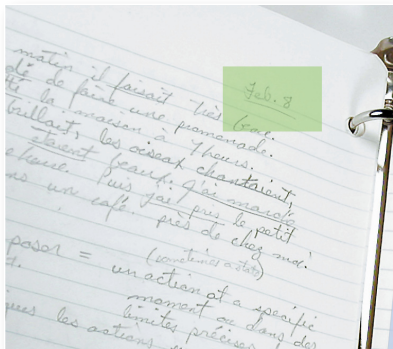 Feb. 8
matin il faisait très beau.
dé de faire une promenade.
tté la maison à 7 heures.
brillait, les oiseaux chantaient,
taient beaux. J'ai marché
e heure. Puis j'ai pris le petit
ns un café près de chez moi.
poser = (sometimes a state)
un action at a specific
moment ou dans des
limites précises
ques les actions